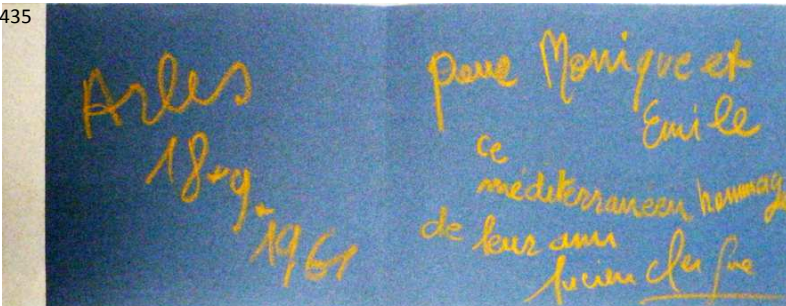 435
Arles
18.9.1961
pour Monique et
Emile
ce
méditerranéen hommage
de leur ami
Lucien Clergue